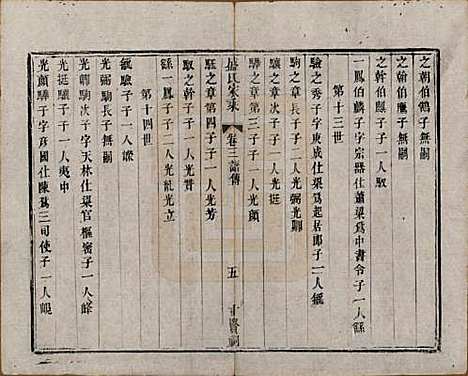 之朝伯鶴子無嗣
之翰伯鷹子無嗣
之幹伯鸞子子一人馭
一鳳伯麟子字宗器仕蕭梁爲中書令子一人繇
第十三世
驗之秀子字東成仕梁爲起居郎子一人
駒之章長子子二人光弼光
驥之章次子子一人光挺
驊之章第三子子一人光顔
駐之章第四子子一人光芳
馭之幹子子一人光普
繇一鳳子子二人光 光立
第十四世
驗子子一人
光弼駒長子無嗣
光 駒次子字天林仕梁官樞密子一人峰
光挺驥子子一人夷中
光顔驊子字彦國仕陳爲三司使子一人峴
盛氏家乘
卷三 世傳
五
十賢祠